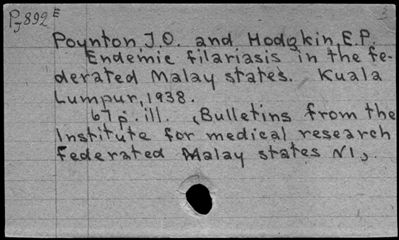 P₇892ᴱ
Poynton, J.O. and Hodgkin, E.P.
Endemic filariasis in the fe-
derated Malay states. Kuala
Lumpur, 1938.
67 p. ill. (Bulletins from the
Institute for medical research
Federated Malay states N1).